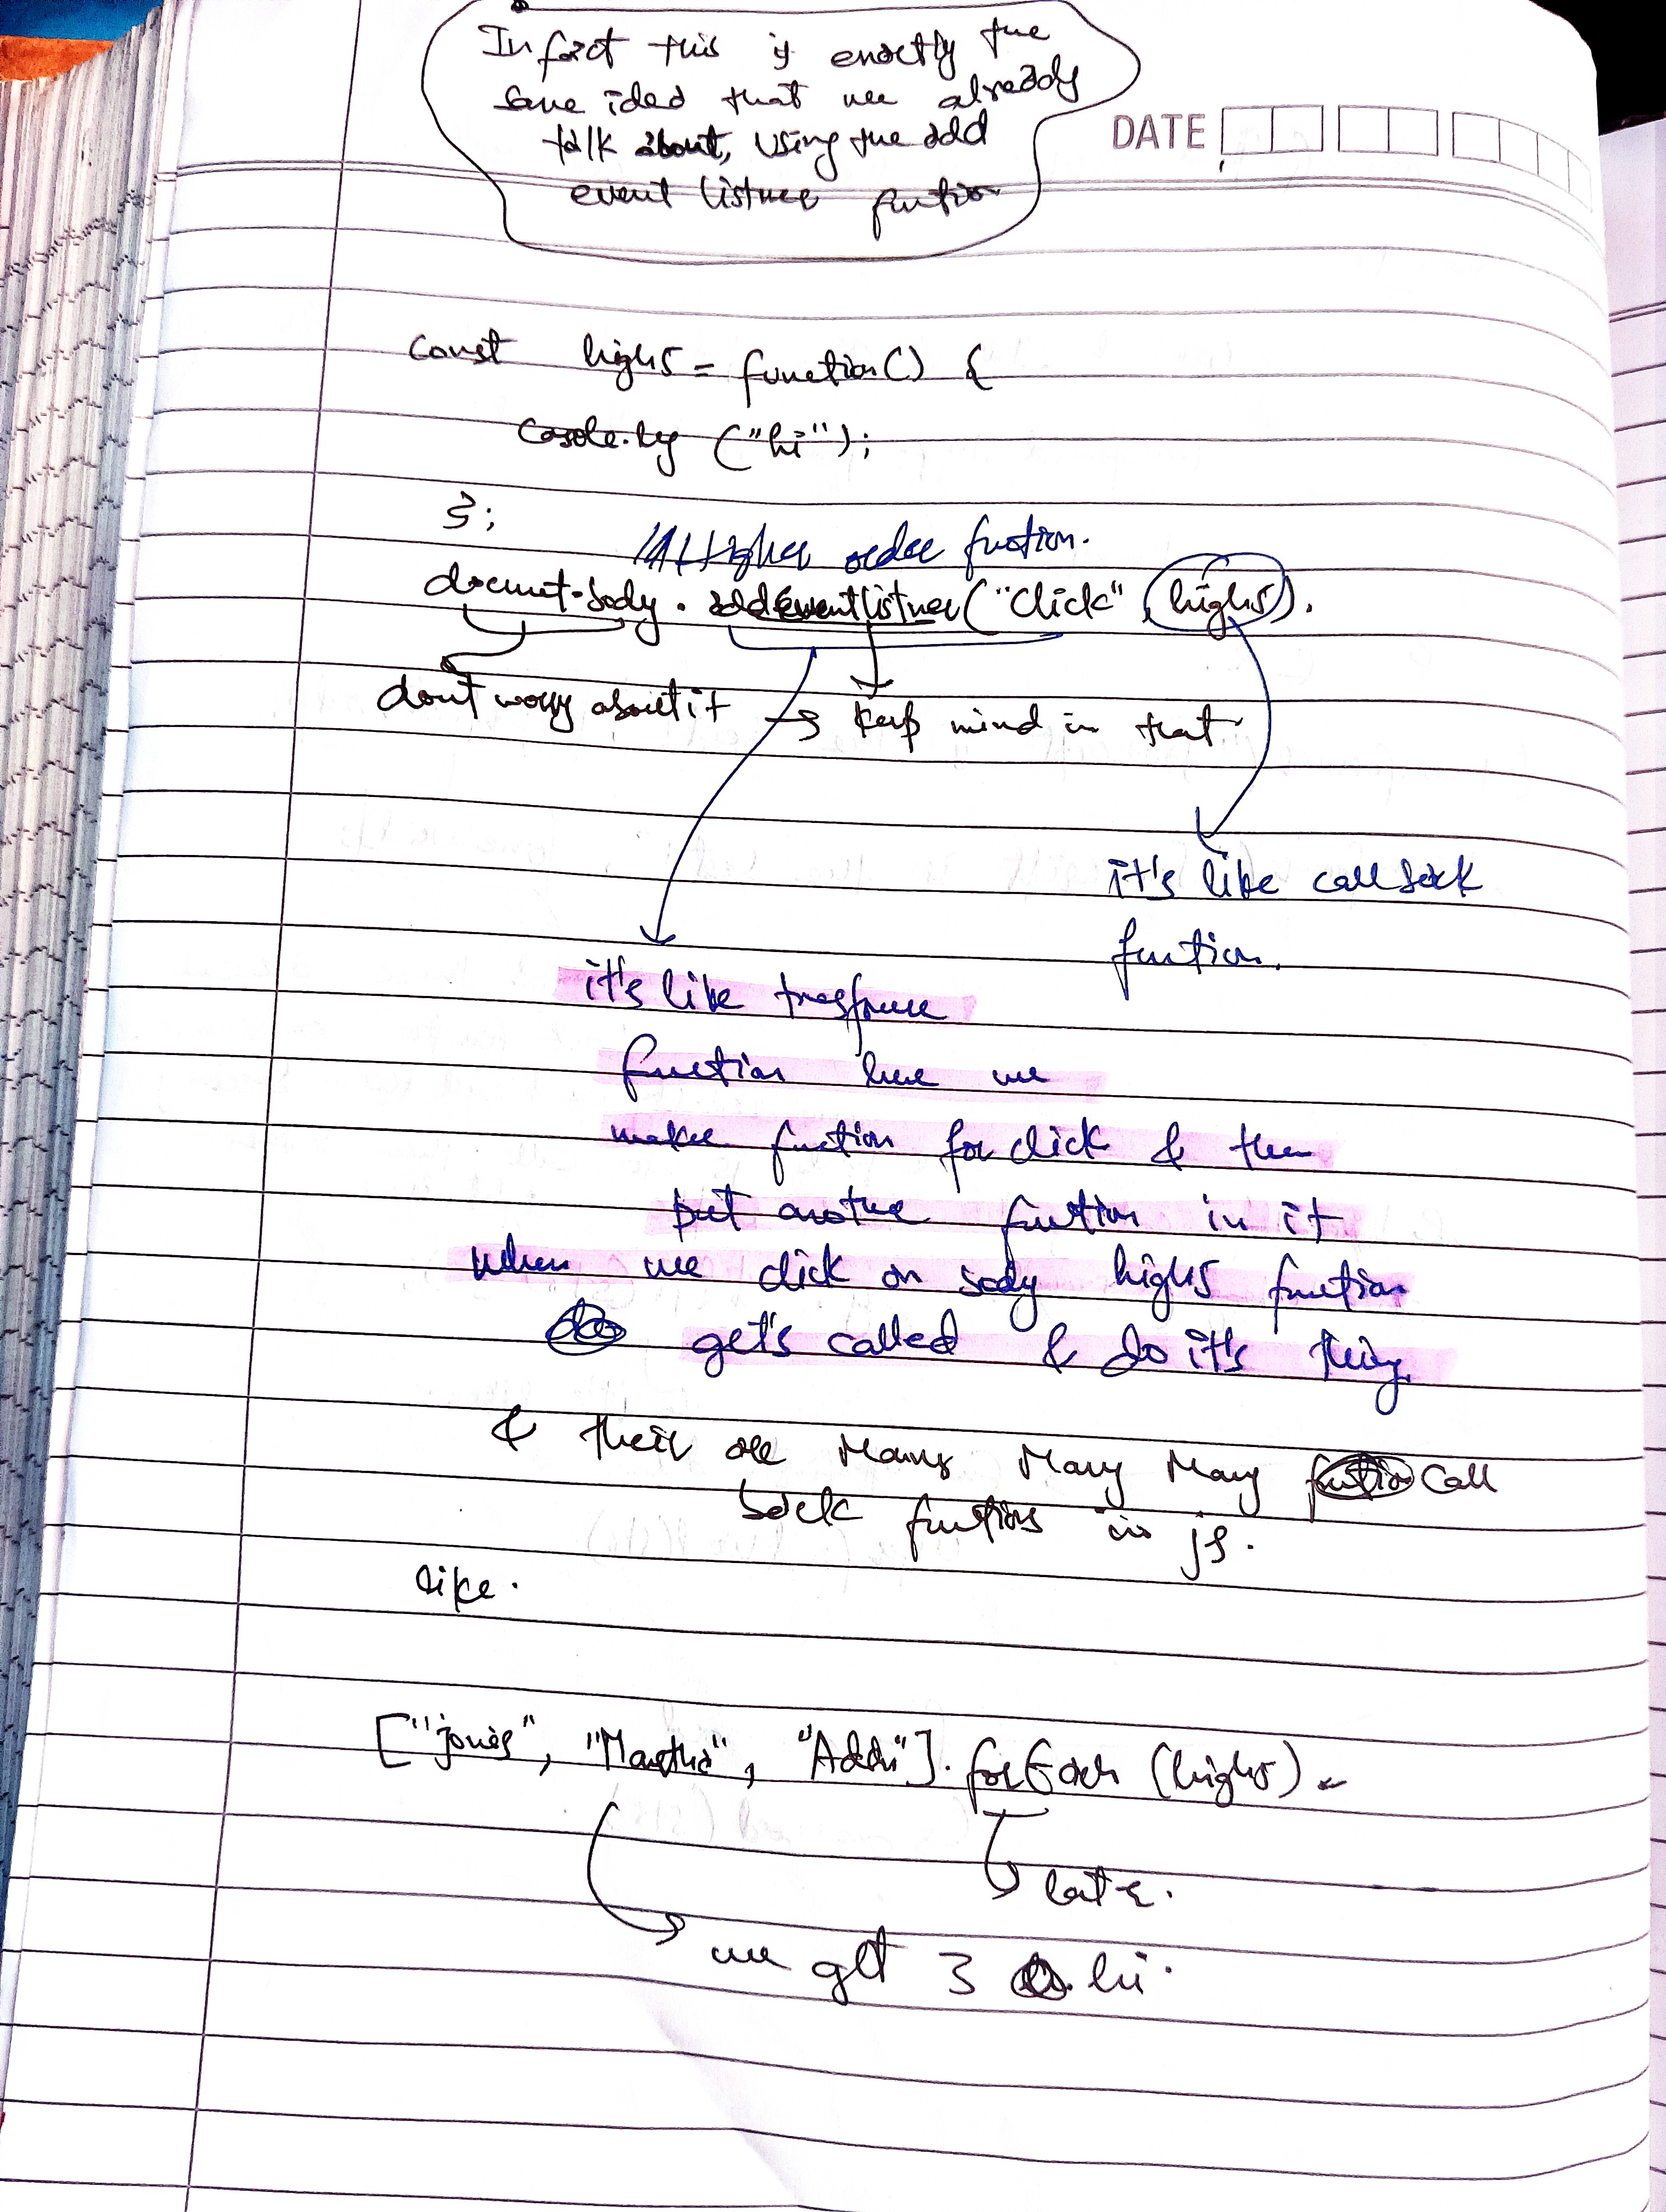 In fact this is exactly the
same idea that we already
talk about, using the add
event listner funtion
DATE
const high5 = function() {
console.log ("hi");
};
// Higher order function.
document.body . addEventlistner ("click", high5).
dont worry about it → keep mind in that
it's like call back
funtion.
it's like
function here we
make function for click & then
put another funtion in it
when we click on body high5 function
get's called & do it's thing.
& their are Many Many Many call
back funtions in js.
like.
["jones", "Martha", "Adam"]. forEach (high5)
late.
we get 3 hi.